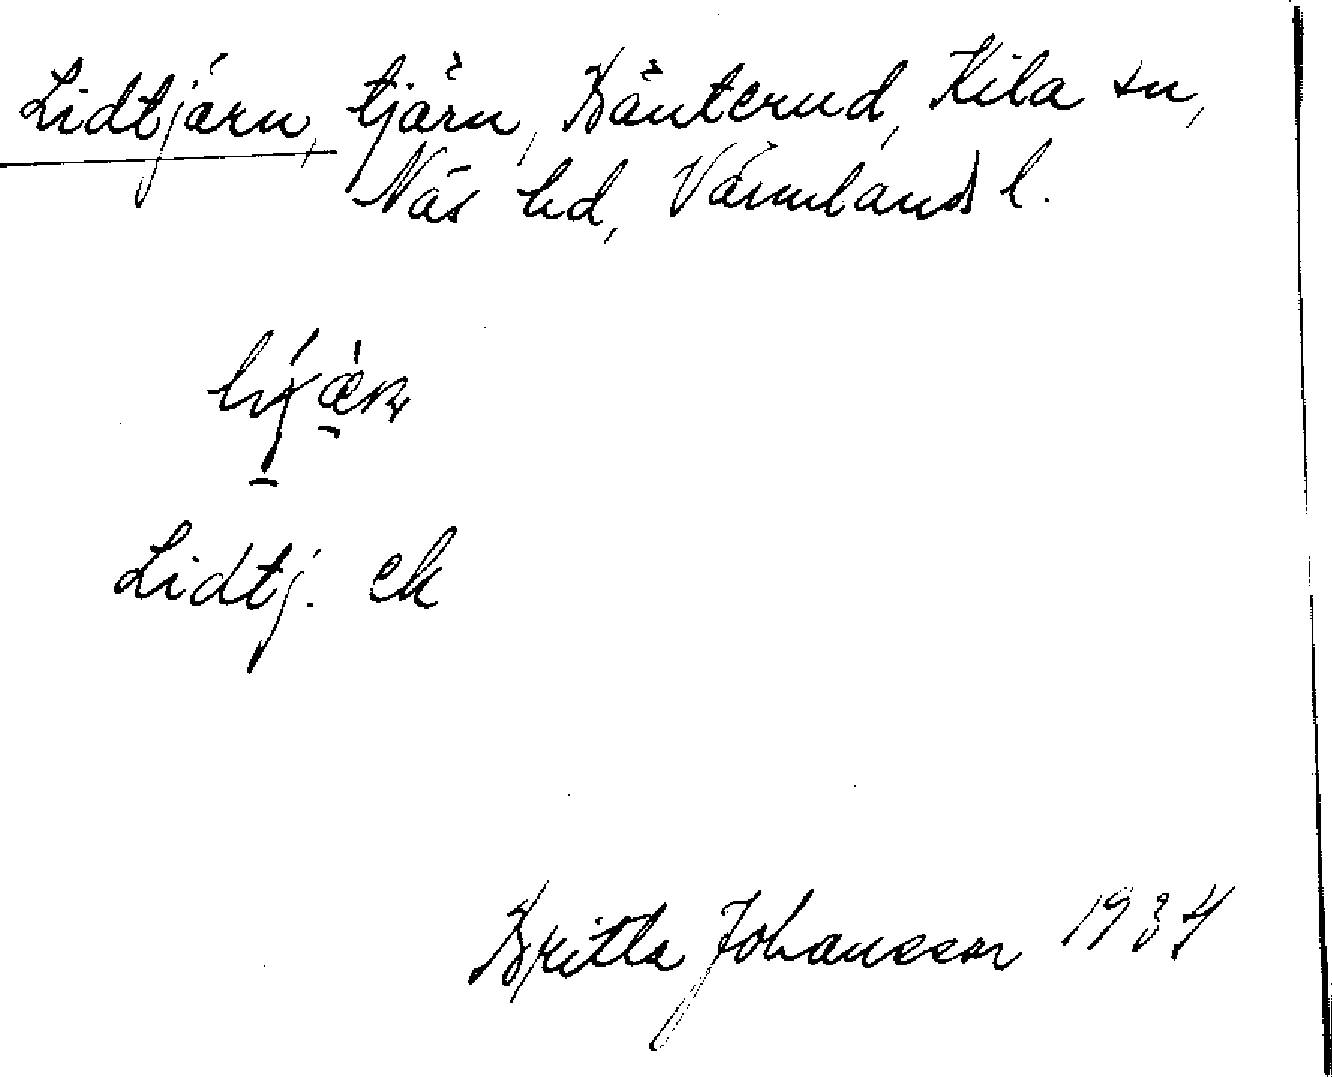 Lidtjärn, tjärn, Bånterud, Kila sn,
Näs hd, Värmlands l.
Lidtj. ek
Britta Johansson 1934